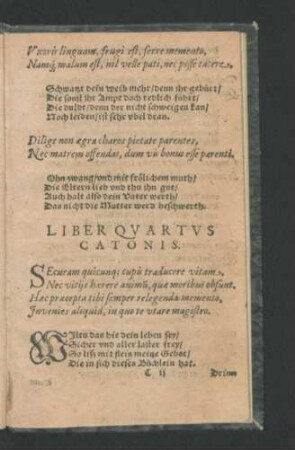 Vxoris linguam, frugi est, ferre memento,
Namq; malum est, nil velle pati, nec posse tacere.
Schwatzt dein weib mehr/denn ihr gebürt/
Die sonst ihr Ampt doch redlich führt/
Die duldt/denn der nicht schweigen kan/
Noch leiden/ist sehr vbel dran.
Dilige non ægra charos pietate parentes,
Nec matrem offendas, dum vis bonus esse parenti.
Ohn zwang/vnd mit frölichem muth/
Die Eltern lieb vnd thu ihn gut/
Auch halt also dein Vater werth/
Das nicht die Mutter werd beschwerth.
LIBER QVARTVS
CATONIS.
SEcuram quicunq; cupis traducere vitam,
Nec vitijs hærere animũ, quæ moribus obsunt,
Hæc præcepta tibi semper relegenda memento,
Invenies aliquid, in quo te vtare magistro.
WIltu das hie dein leben sey/
Sicher vnd aller laster frey/
So liß mit fleis meine Gebot/
Die in sich dieses Büchlein hat.
C ij